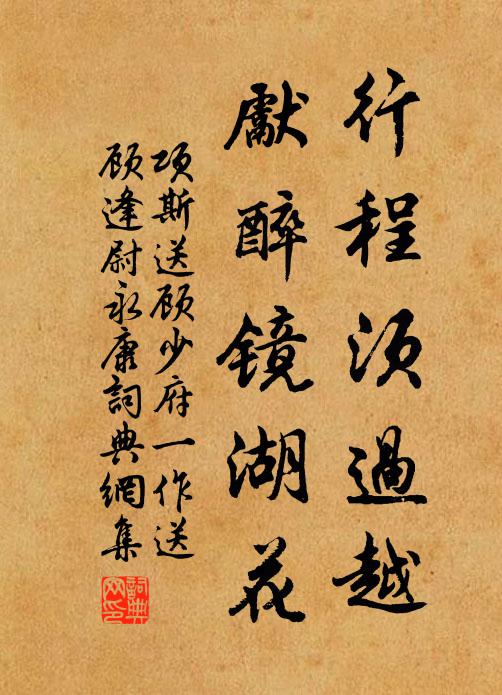 行程须過越
獻醉镜湖花
项斯送顾少府一作送
顾逢尉永康詞典網集
詞典
网印